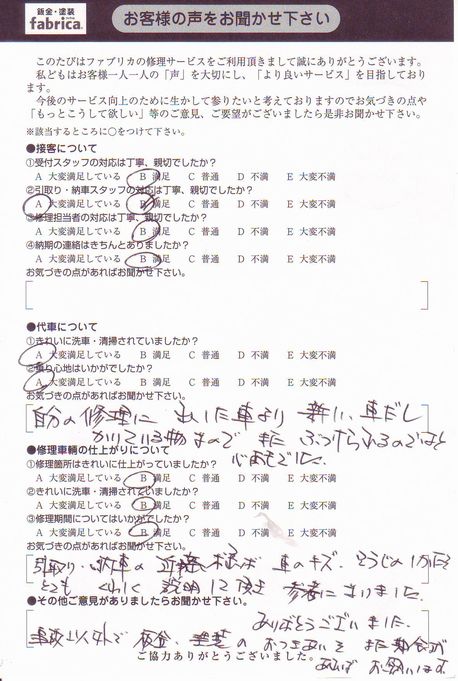 鈑金・塗装
fabrica.
お客様の声をお聞かせ下さい
このたびはファブリカの修理サービスをご利用頂きまして誠にありがとうございます。
私どもはお客様一人一人の「声」を大切にし、「より良いサービス」を目指しております。
今後のサービス向上のために生かして参りたいと考えておりますのでお気づきの点や
「もっとこうして欲しい」等のご意見、ご要望がございましたら是非お聞かせ下さい。
※該当するところに○をつけて下さい。
●接客について
①受付スタッフの対応は丁寧、親切でしたか？
A 大変満足している B 満足 C 普通 D 不満 E 大変不満
②引取り・納車スタッフの対応は丁寧、親切でしたか？
A 大変満足している B 満足 C 普通 D 不満 E 大変不満
③修理担当者の対応は丁寧、親切でしたか？
A 大変満足している B 満足 C 普通 D 不満 E 大変不満
④納期の連絡はきちんとありましたか？
A 大変満足している B 満足 C 普通 D 不満 E 大変不満
お気づきの点があればお聞かせ下さい。
●代車について
①きれいに洗車・清掃されていましたか？
A 大変満足している B 満足 C 普通 D 不満 E 大変不満
②乗り心地はいかがでしたか？
A 大変満足している B 満足 C 普通 D 不満 E 大変不満
お気づきの点があればお聞かせ下さい。
自分の修理に 出した車より 新しい 車だし
かりている物なので また ぶつけられるのではと
心配でした。
●修理車輌の仕上がりについて
①修理箇所はきれいに仕上がっていましたか？
A 大変満足している B 満足 C 普通 D 不満 E 大変不満
②きれいに洗車・清掃されていましたか？
A 大変満足している B 満足 C 普通 D 不満 E 大変不満
③修理期間についてはいかがでしたか？
A 大変満足している B 満足 C 普通 D 不満 E 大変不満
お気づきの点があればお聞かせ下さい。
引取り・納車の 車のキズ、そうじのしかた
とても くわしく 説明して頂き 参考になりました。
●その他ご意見がありましたらお聞かせ下さい。
ありがとうございました。
事故以外で 板金、塗装 の おつきあいを また 機会が
あれば お願いします。
ご協力ありがとうございました。